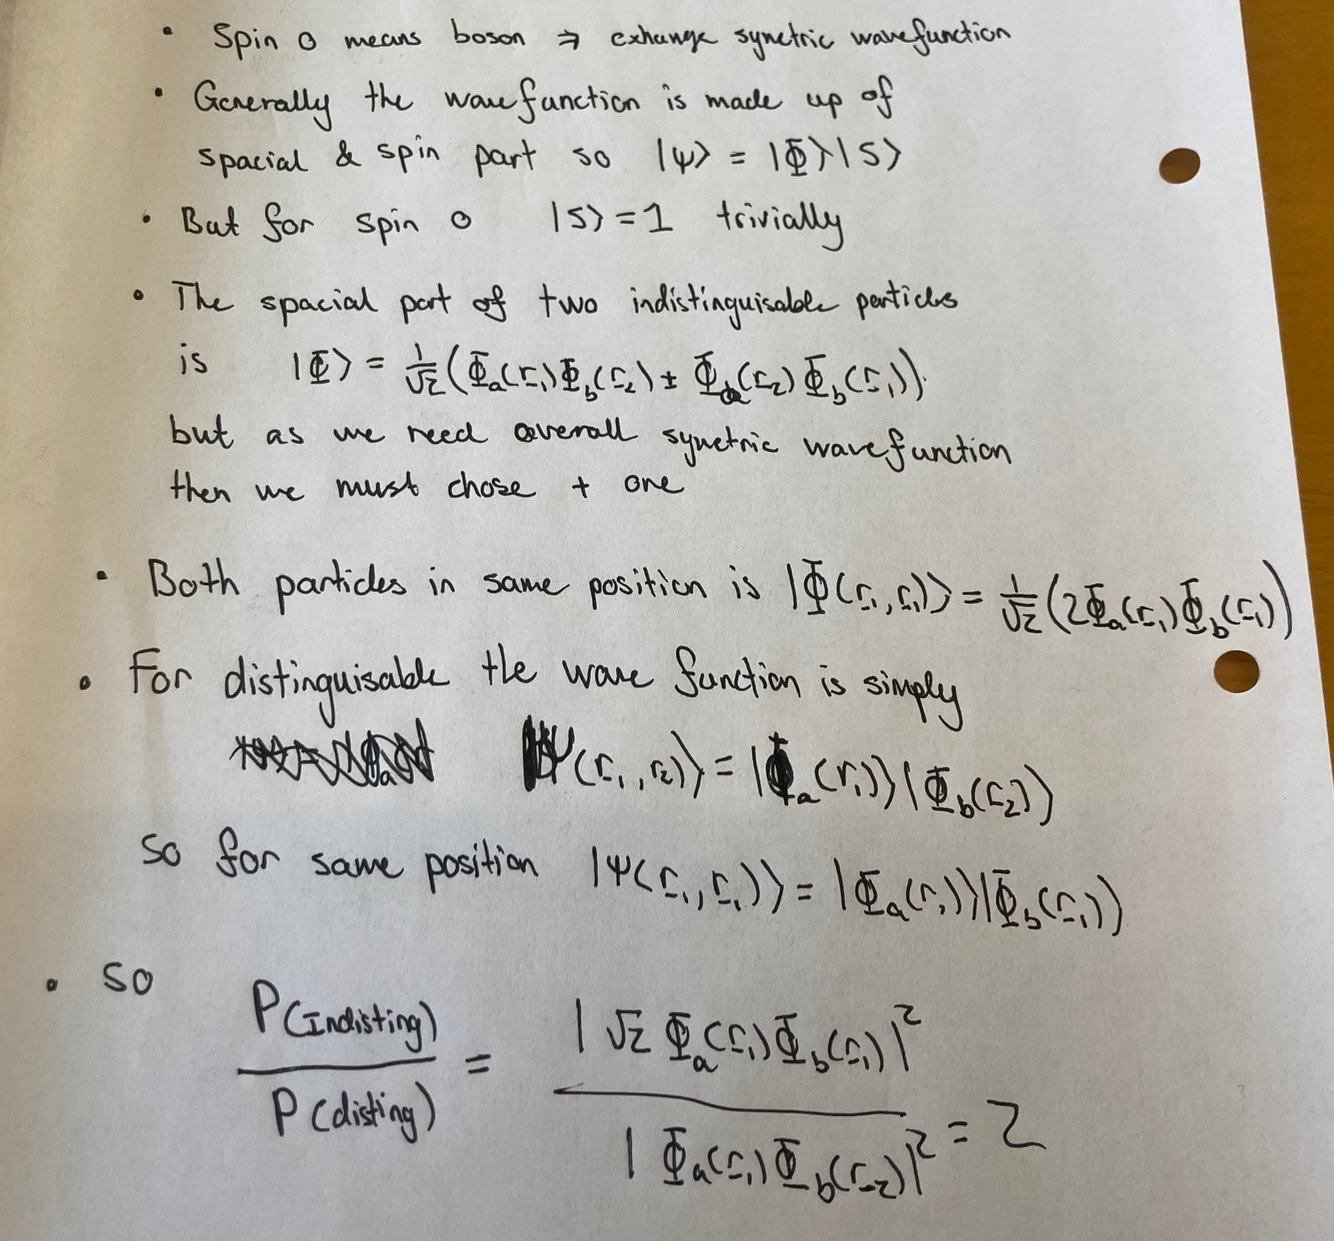 • Spin 0 means boson ⇒ exhange symetric wavefunction
• Generally the wavefunction is made up of
spacial & spin part so |ψ⟩ = |Φ⟩|S⟩
• But for spin 0 |S⟩ = 1 trivially
• The spacial part of two indistinguisable particles
is |Φ⟩ = 1/√2 (Φa(r1)Φb(r2) ± Φa(r2)Φb(r1)).
but as we need overall symetric wavefunction
then we must chose + one
• Both particles in same position is |Φ(r1,r1)⟩ = 1/√2 (2Φa(r1)Φb(r1))
• For distinguisable the wave function is simply
|Ψ(r1,r2)⟩ = |Φa(r1)⟩|Φb(r2)⟩
so for same position |Ψ(r1,r1)⟩ = |Φa(r1)⟩|Φb(r1)⟩
• so P(Indisting)/P(disting) = |√2 Φa(r1)Φb(r1)|²/|Φa(r1)Φb(r2)|² = 2